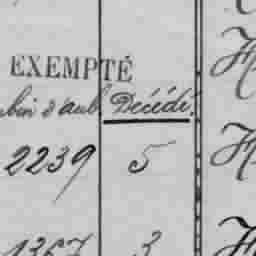 EXEMPTÉ
Décédé.
2239 5
1367 3